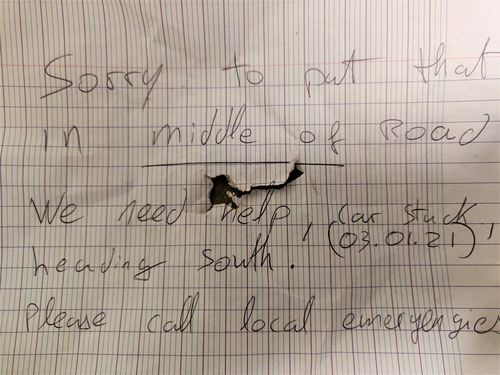 Sorry to put that
in middle of Road
We need help, car stuck
heading south. ! (03.01.21) !
Please call local emergengies